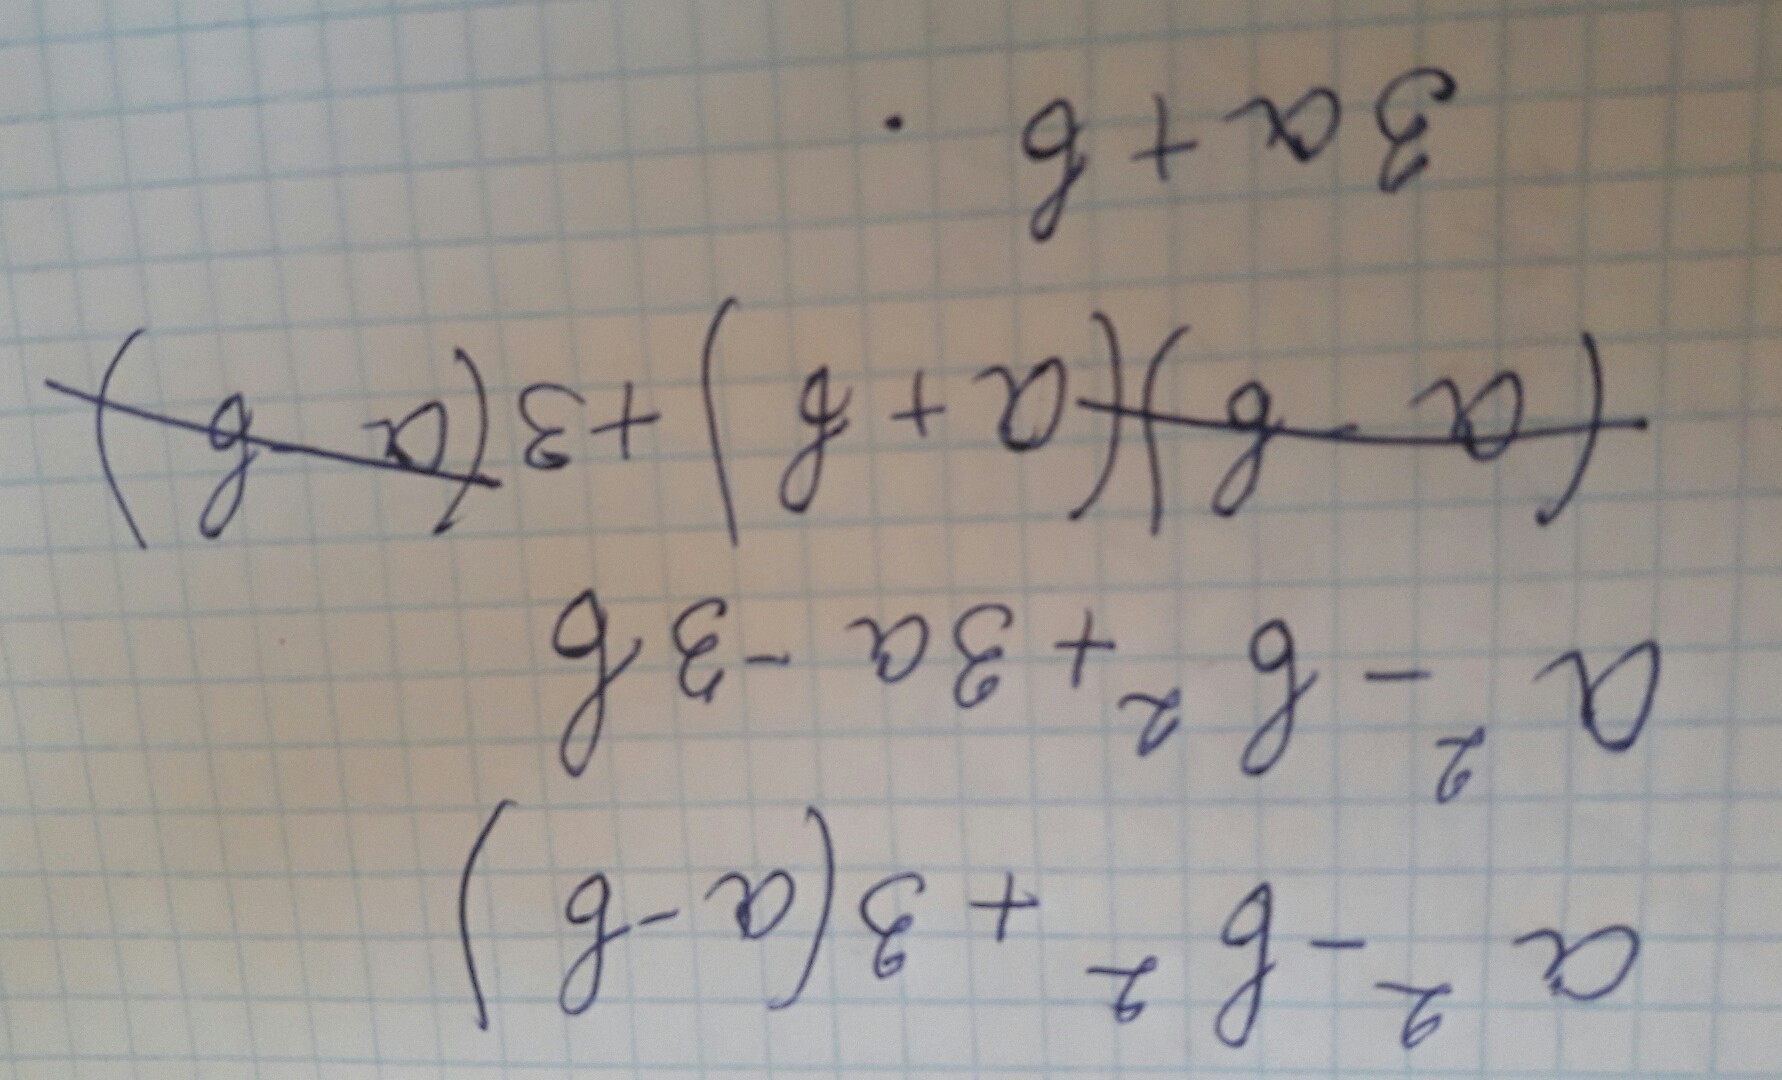 a² - b² + 3(a-b)
a² - b² + 3a - 3b
(a - b)(a + b) + 3(a - b)
3a + b .